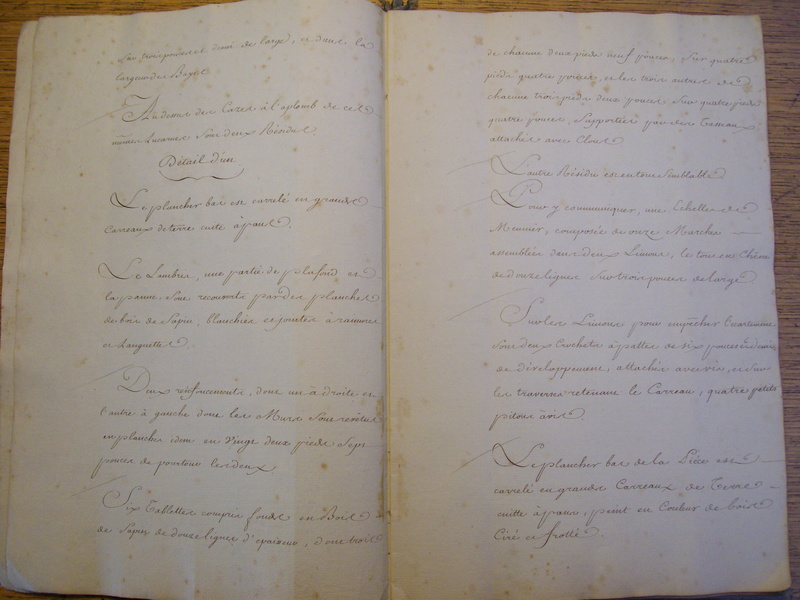 Sur trois pouces et demi de large, et dans la
largeur des Bayes
Au dessus des Caves à l'aplomb de ces
mêmes Lucarnes Sont deux Résidus
Détail d'un
Le plancher bas est carrelé en grands
Carreaux de terre cuite à pans.
Le Lambris, une partie de plafond et
la panne Sont recouverts par des planches
de bois de Sapin, blanchies et jointes à rainures
et Languettes.
Deux renfoncements, dont un à droite et
l'autre à gauche dont les Murs Sont revêtus
en planches idem en Vingt deux pieds Sept
pouces de pourtour les deux
Six Tablettes compris fonds en Bois
de Sapin de douze lignes d'epaisseur, dont trois
de chacune deux pieds neuf pouces, Sur quatre
pieds quatre pouces, et les trois autres de
chacune trois pieds deux pouces Sur quatre pieds
quatre pouces, Supportées par des Tasseaux
attachés avec Clous
L'autre Résidu est en tout Semblable
Pour y communiquer, une Echelle de
Meunier, composée de onze Marches
assemblées dans deux Limons, le tout en Chêne
de douze lignes Sur trois pouces de large
Sur les Limons pour empêcher l'écartement
Sont deux Crochets à pattes de dix pouces
de développement, attachés avec vis, et Sur
les traverses retenant le Carreau, quatre petits
pitons à vis.
Le plancher bas de la Pièce est
carrelé en grands Carreaux de Terre
cuitte à pans, peint en Couleur de bois
Ciré et frotté.